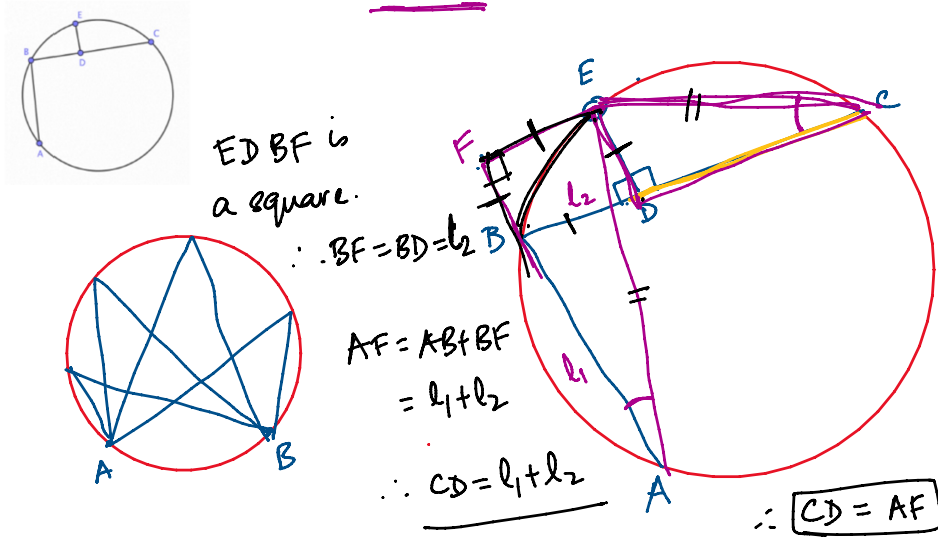 E
B
C
D
A
EDBF is
a square.
∴ BF = BD = l₂
AF = AB + BF
= l₁ + l₂
∴ CD = l₁ + l₂
A
B
E
F
C
l₂
D
B
l₁
A
∴ CD = AF